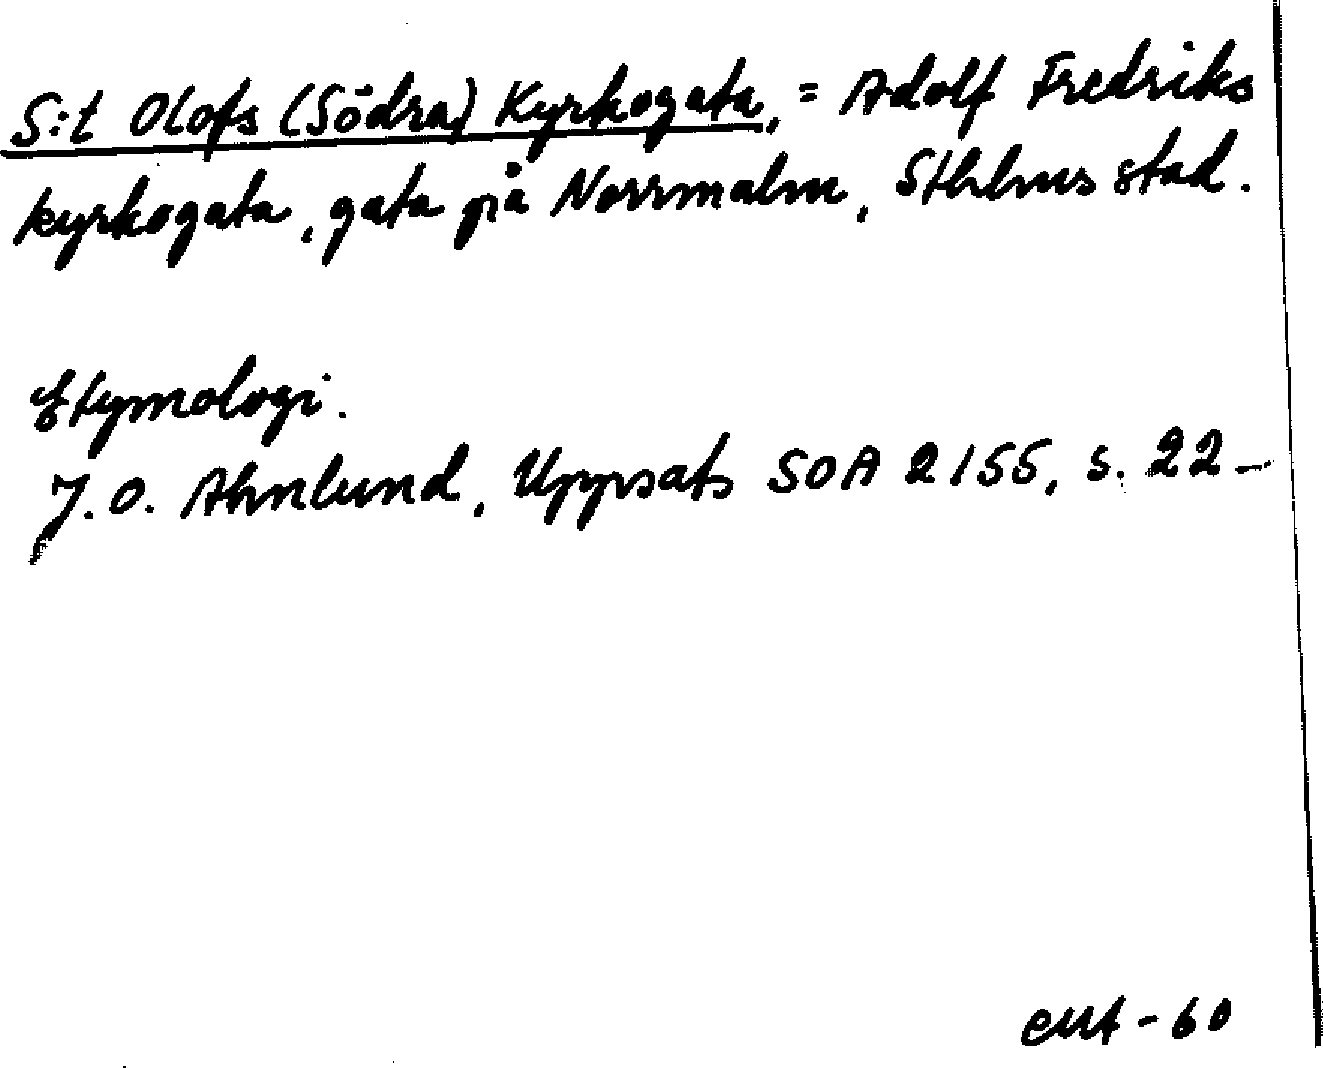 S:t Olofs (Södra) Kyrkogata, = Adolf Fredriks
kyrkogata, gata på Norrmalm, Sthlms stad.
Etymologi.
J.O. Ahnlund, Uppsats SOA 2155, s. 22-
-60